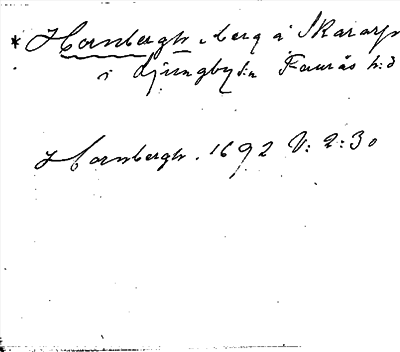 * Hornbergh, berg å Skararp
i Ljungby s:n Faurås h:d
Hornbergh. 1692 V: 2:30